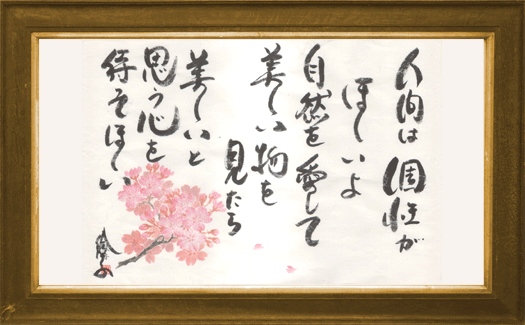 人間は個性が
ほしいよ
自然を愛して
美しい物を
見たら
美しいと
思う心を
ほしい